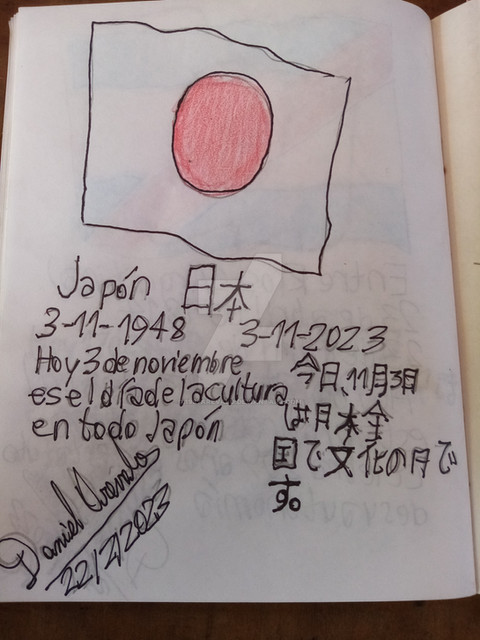 Japón 日本
3-11-1948 3-11-2023
Hoy 3 de noviembre
es el día de la cultura
en todo Japón
今日、11月3日
は日本全
国で文化の日で
す。
Daniel
22/2/2023